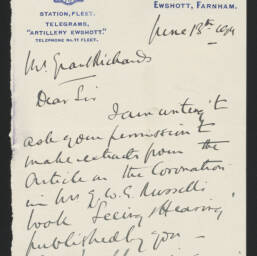 STATION, FLEET.
TELEGRAMS,
"ARTILLERY EWSHOTT."
TELEPHONE No. 11 FLEET.
EWSHOTT, FARNHAM.
June 13th
Mr Grant Richards
Dear Sir
I am writing to
ask your permission to
make extracts from the
Article on the Coronation
in Mr G. W. E. Russell's
book 'Seeing & Hearing'
published by you —